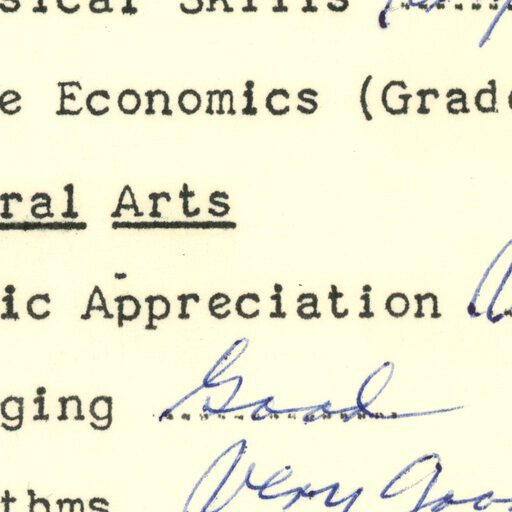 sical Skills
e Economics (Grade
ral Arts
ic Appreciation
ging Good
thms Very Good